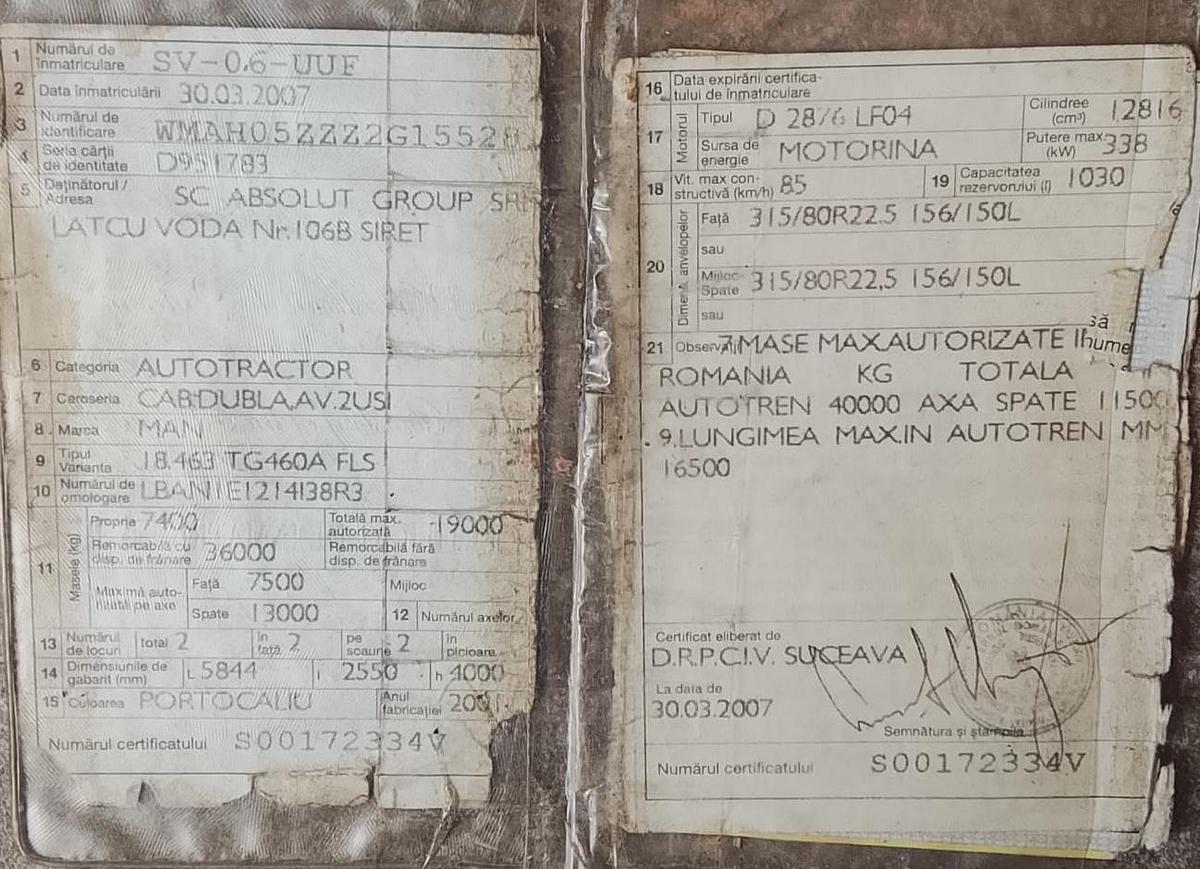 1 Numărul de înmatriculare SV-0.6-UUF
2 Data înmatriculării 30.03.2007
3 Numărul de identificare WMAH05ZZZ2G15528
4 Seria cărții de identitate D951783
5 Deținătorul / Adresa SC ABSOLUT GROUP SR
LATCU VODA Nr.106B SIRET
6 Categoria AUTOTRACTOR
7 Caroseria CAB.DUBLA,AV.2USI
8 Marca MAN
9 Tipul Varianta 18.463 TG460A FLS
10 Numărul de omologare LBAN1E1214138R3
11 Masele (kg)
Proprie 7400 Totală max. autorizată 19000
Remorcabilă cu disp. de frânare 36000 Remorcabilă fără disp. de frânare
Maximă autorizată pe axe Față 7500 Mijloc
Spate 13000 12 Numărul axelor
13 Numărul de locuri total 2 în față 2 pe scaune 2 în picioare
14 Dimensiunile de gabarit (mm) L 5844 l 2550 h 4000
15 Culoarea PORTOCALIU Anul fabricației 2001
Numărul certificatului S00172334V
16 Data expirării certifica-
tului de înmatriculare
17 Motorul Tipul D 2876 LF04 Cilindree (cm³) 12816
Sursa de energie MOTORINA Putere max. (kW) 338
18 Vit. max con-
structivă (km/h) 85 19 Capacitatea rezervorului (l) 1030
20 Dimens. anvelopelor Față 315/80R22.5 156/150L
sau
Mijloc-
Spate 315/80R22,5 156/150L
sau
21 Observații 7.MASE MAX.AUTORIZATE
ROMANIA KG TOTALA
AUTOTREN 40000 AXA SPATE 11500
. 9.LUNGIMEA MAX.IN AUTOTREN MM
16500
Certificat eliberat de
D.R.P.C.I.V. SUCEAVA
La data de
30.03.2007
Semnătura și ștampila
Numărul certificatului S00172334V